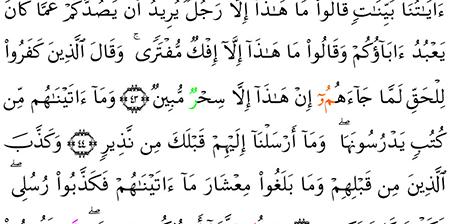 ءَايَٰتُنَا بَيِّنَٰتٍ قَالُوا۟ مَا هَٰذَآ إِلَّا رَجُلٌ يُرِيدُ أَن يَصُدَّكُمْ عَمَّا كَانَ
يَعْبُدُ ءَابَآؤُكُمْ وَقَالُوا۟ مَا هَٰذَآ إِلَّآ إِفْكٌ مُّفْتَرًى ۚ وَقَالَ ٱلَّذِينَ كَفَرُوا۟
لِلْحَقِّ لَمَّا جَآءَهُمُۥٓ إِنْ هَٰذَآ إِلَّا سِحْرٌ مُّبِينٌ ﴿٤٣﴾ وَمَآ ءَاتَيْنَٰهُم مِّن
كُتُبٍ يَدْرُسُونَهَا ۖ وَمَآ أَرْسَلْنَآ إِلَيْهِمْ قَبْلَكَ مِن نَّذِيرٍ ﴿٤٤﴾ وَكَذَّبَ
ٱلَّذِينَ مِن قَبْلِهِمْ وَمَا بَلَغُوا۟ مِعْشَارَ مَآ ءَاتَيْنَٰهُمْ فَكَذَّبُوا۟ رُسُلِى ۖ